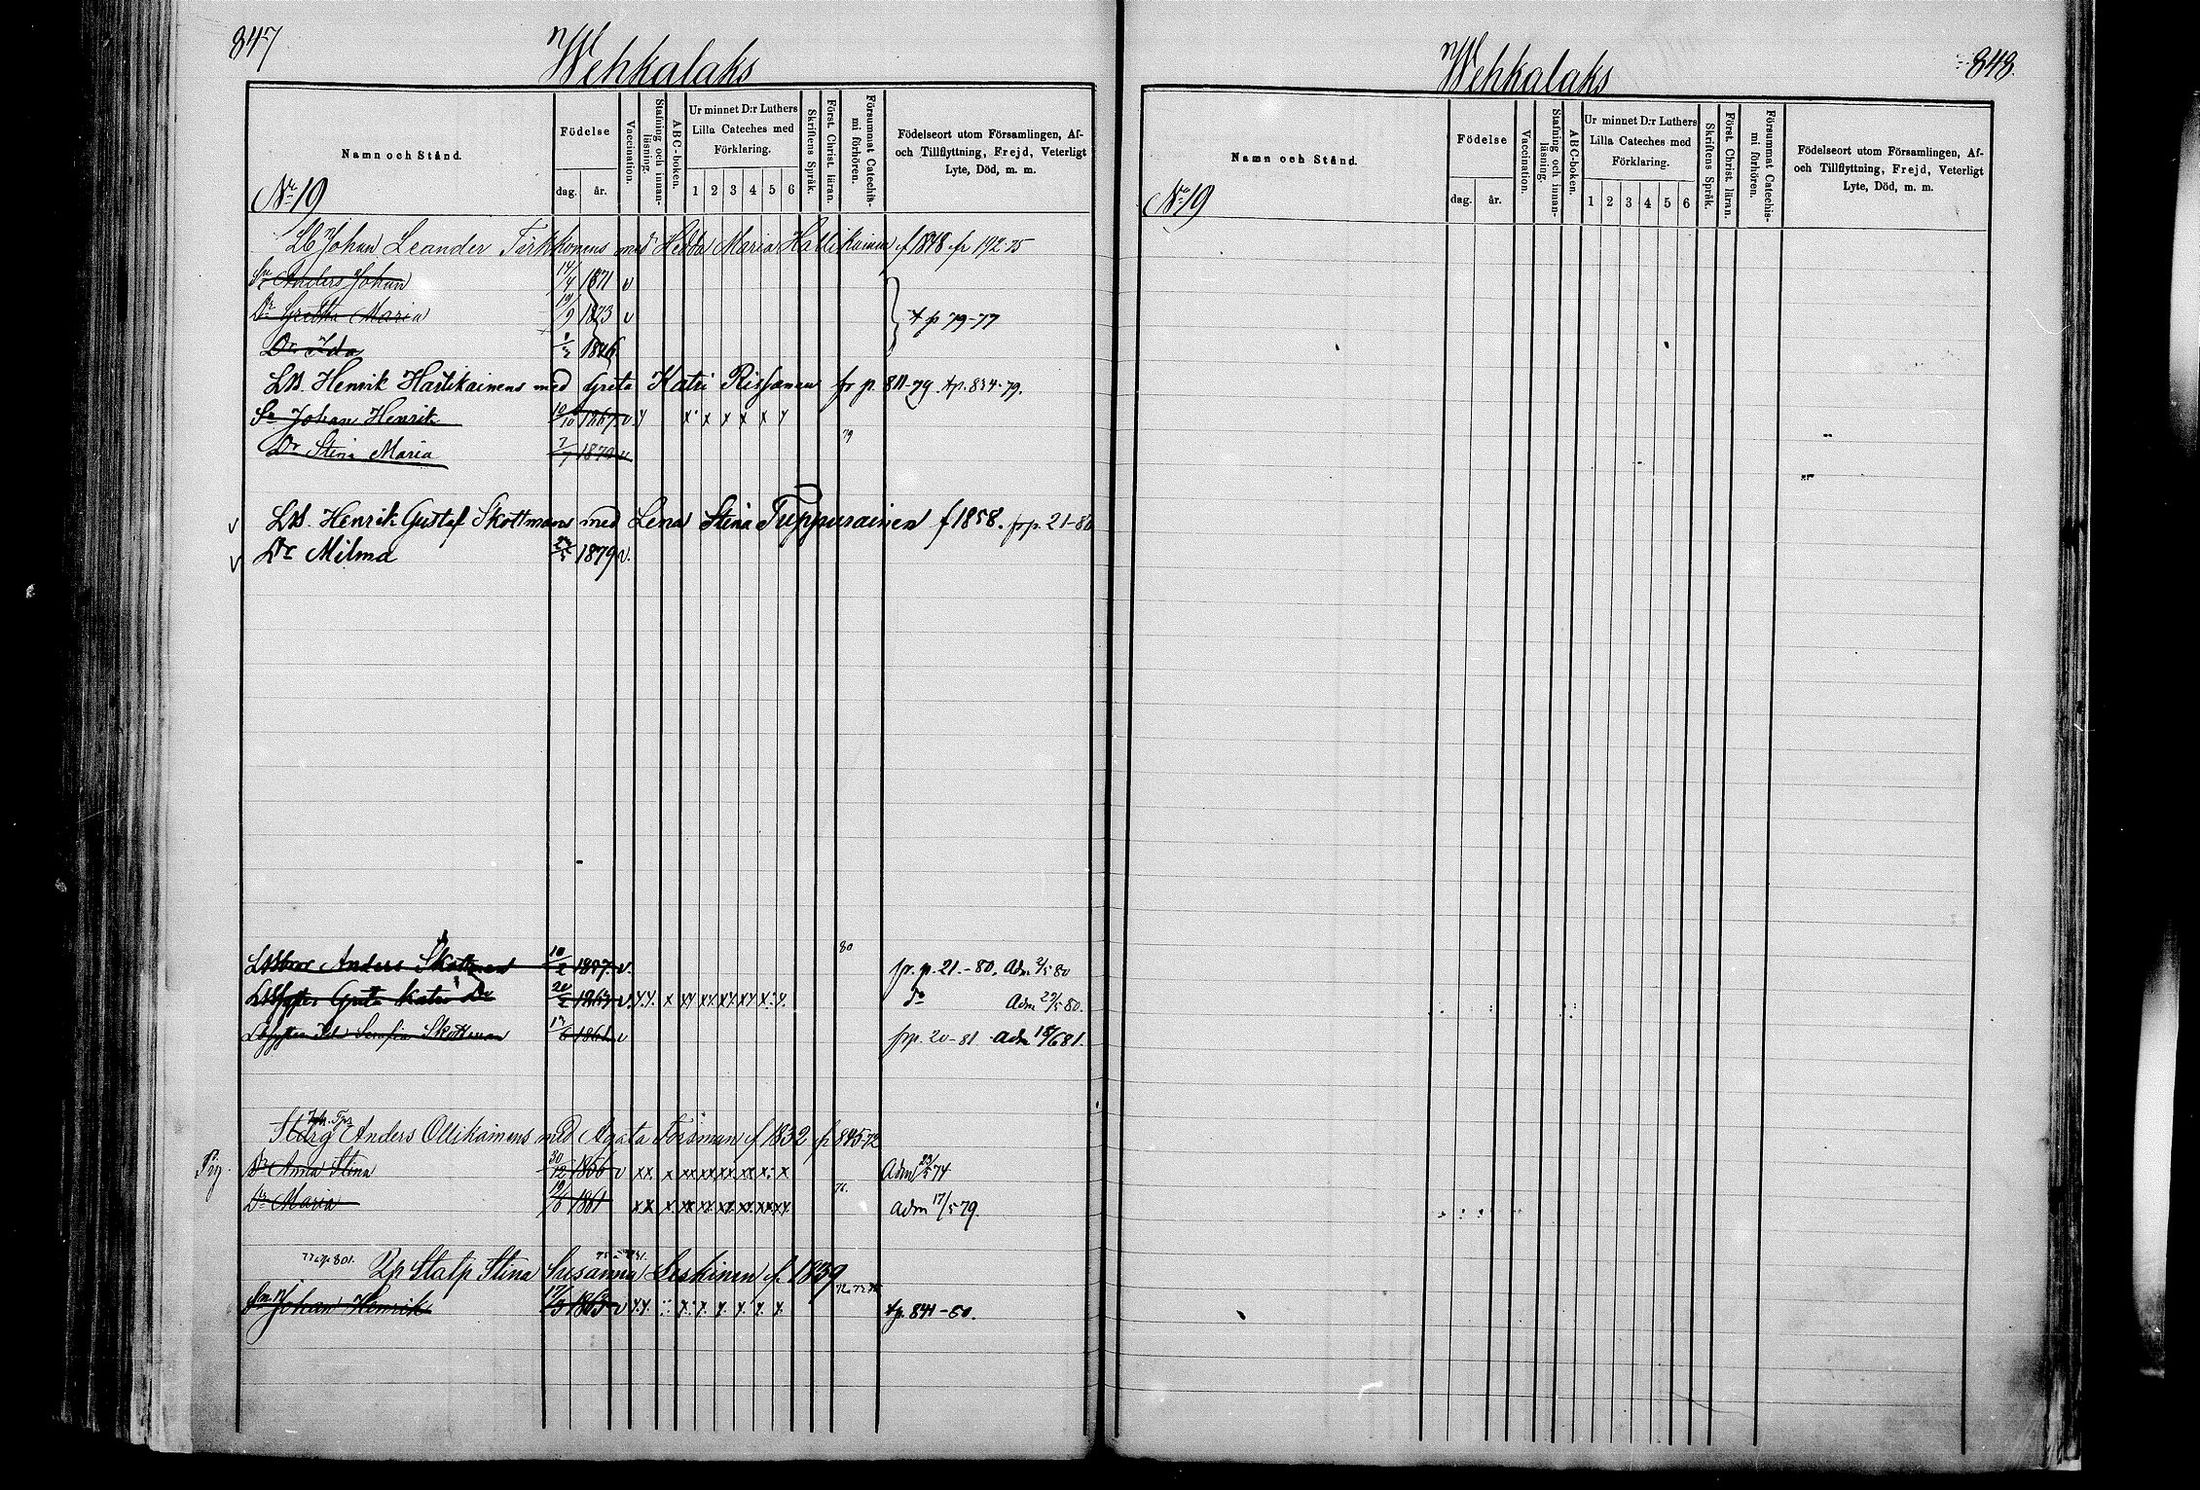 847
Wehkalaks
Namn och Stånd.
Födelse
dag. år.
Vaccination.
Stafning och innan-läsning.
ABC-boken.
Ur minnet D:r Luthers
Lilla Cateches med
Förklaring.
1 2 3 4 5 6
Skriftens Språk.
Först. Christ. läran.
Försummat Catechis-mi förhören.
Födelseort utom Församlingen, Af-
och Tillflyttning, Frejd, Veterligt
Lyte, Död, m. m.
No 19
Johan Leander med Hedda Maria f 1848 fr 192-75
Sn Anders Johan 14/4 1871 v
Dr Gretha Maria 19/9 1873 v t p 79-77
Dr Ida
Henrik Hartikainens med Greta Katri Rissanen fr p. 811-79. tp. 834-79.
Sn Johan Henrik 10/10 1867 v y x x x x x y
79
Dr Stina Maria 7/7 1872 v
Henrik Gustaf Skottmans med Lena Stina Tuppurainen f 1858. frp. 21-80
Dr Milma 1879 v.
80
Anders Skottman 10/2 1857 v. fr. p. 21.-80. Adm 2/5 80
Greta Katri Do 20/2 1863 v do Adm 23/5 80.
Serafia Skottman 1861 v frp. 20-81 Adm 18/6 81.
Anders Ollikainens med Agata Forsman f 1832 fr 845-72
Pig. Dr Anna Stina 30/12 1856 v xx x xx xx xx xx x: x Adm 23/5 74
Dr Maria 19/6 1861 xx x Adm 17/5 79.
Stina Susanna Leskinen f. 1839
Sn Johan Henrik 17/3 1863 v tp. 841-80.
848.
Wehkalaks
Namn och Stånd.
Födelse
dag. år.
Vaccination.
Stafning och innan-läsning.
ABC-boken.
Ur minnet D:r Luthers
Lilla Cateches med
Förklaring.
1 2 3 4 5 6
Skriftens Språk.
Först. Christ. läran.
Försummat Catechis-mi förhören.
Födelseort utom Församlingen, Af-
och Tillflyttning, Frejd, Veterligt
Lyte, Död, m. m.
No 19